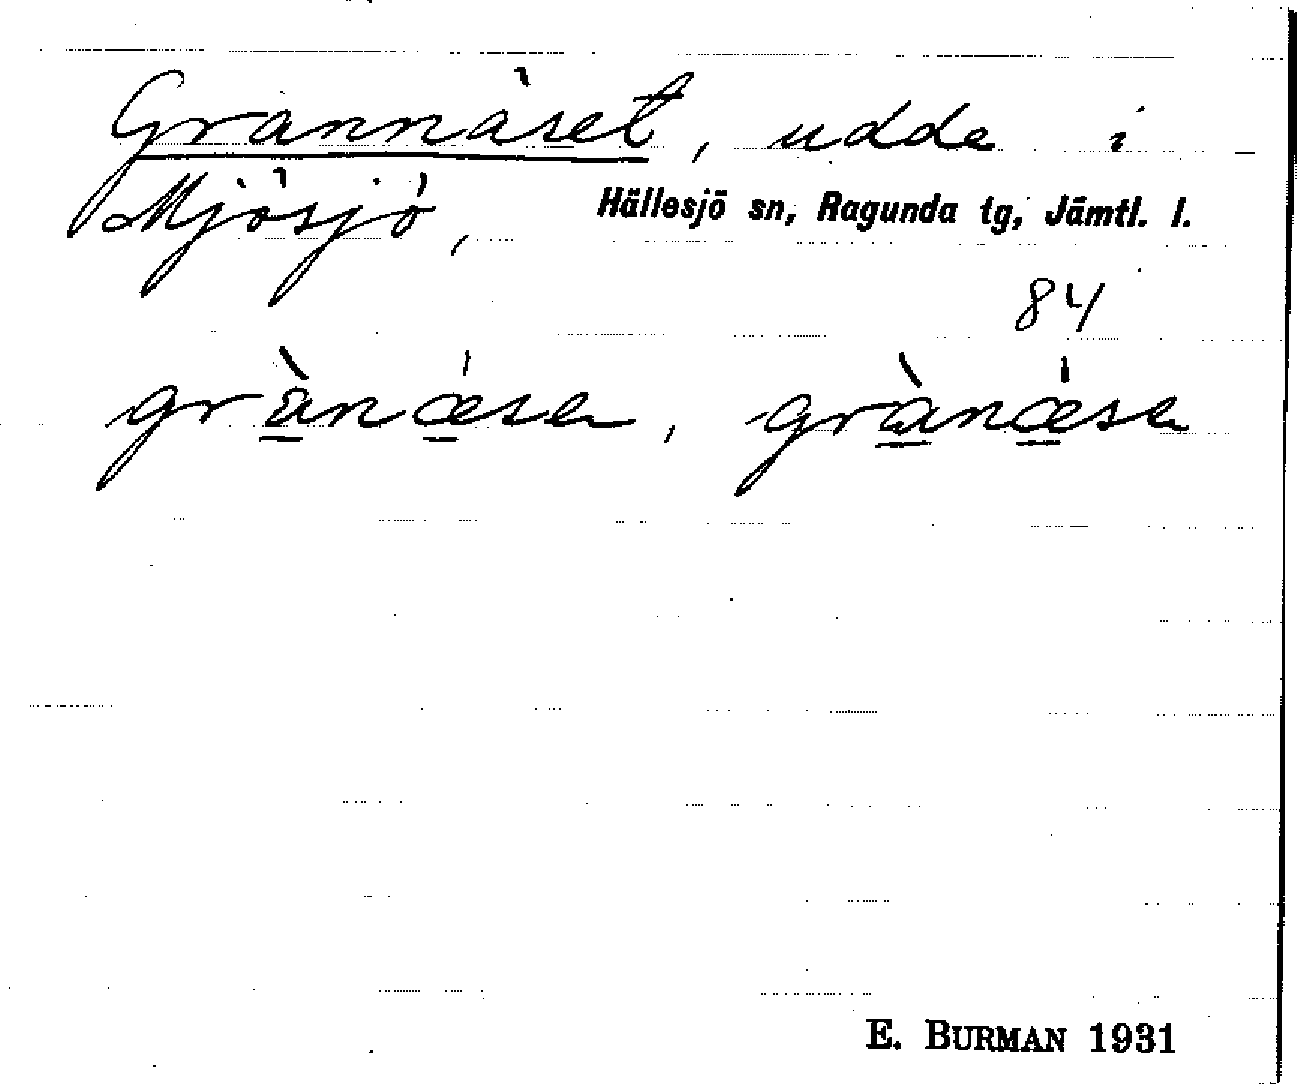 Grannäset, udde i
Mjösjö, Hällesjö sn, Ragunda tg, Jämtl. l.
84
gràǹǽsen, grànǽse
E. BURMAN 1931